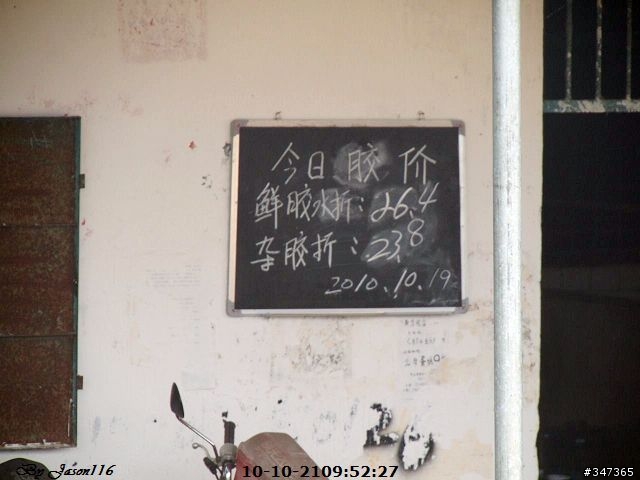 今日胶价
鲜胶水折：26.4
杂胶折：23.8
2010.10.19
By Jason116
10-10-2109:52:27
#347365